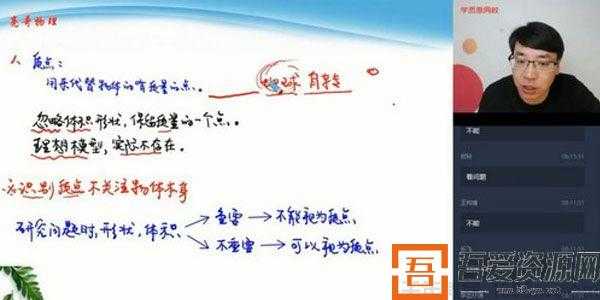 亮哥物理
学而思网校
1、质点:
用来代替物体的有质量的点。
地球 自转
忽略体积形状,保留质量的一个点.
理想模型,实际不存在.
识别质点不关注物体本身
研究问题时,形状、体积
重要 → 不能视为质点
不重要 → 可以视为质点
不能
看问题
不能
吾
吾爱资源网